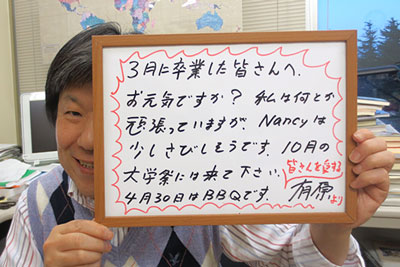 3月に卒業した皆さんへ.
お元気ですか? 私は何とか
頑張っていますが、Nancyは
少しさびしそうです. 10月の
大学祭には来て下さい.
4月30日はBBQです.
皆さんを愛する
有原より